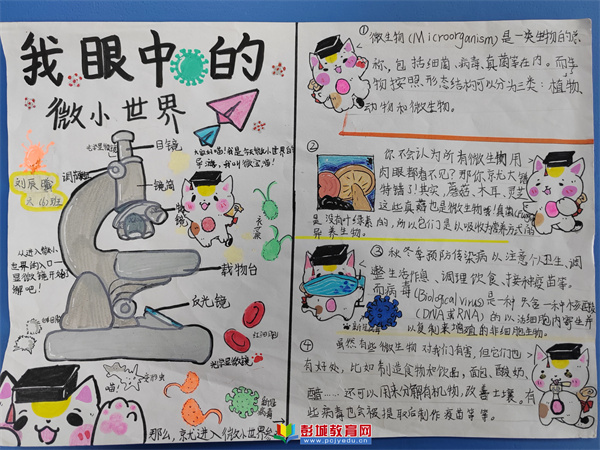 我眼中的
微小世界
刘辰
六(6)班
目镜
镜筒
载物台
反光镜
光学显微镜
红细胞
大家好喵!我是
我叫微宝喵!
那么,
进入《微小世界
①微生物(Microorganism)是一类生物的总
称,包括细菌、病毒、真菌等在内。而生
物按照形态结构可以分为三类:植物、
动物和微生物。
②
你不会认为所有微生物用
肉眼都看不见?那你可大错
特错了!其实,蘑菇、木耳、灵芝
这些真菌也是微生物喵!真菌
是没有叶绿素的,所以它们是以吸收为营养方式的
异养生物。
③秋冬季预防传染病从注意个卫生、调
整生活作息、调理饮食、接种疫苗等。
而病毒(Biological virus)是一种只含一种核酸
(DNA或RNA)的以活细胞内寄生并
以复制来增殖的非细胞生物。
④虽然有些微生物对我们有害,但它们也
有好处,比如制造食物和饮品,面包、酸奶、
醋……还可以用来分解有机物,改善土壤。有
些病毒也会被提取后制作疫苗等等。
彭城教育网
www.pcjyedu.cn